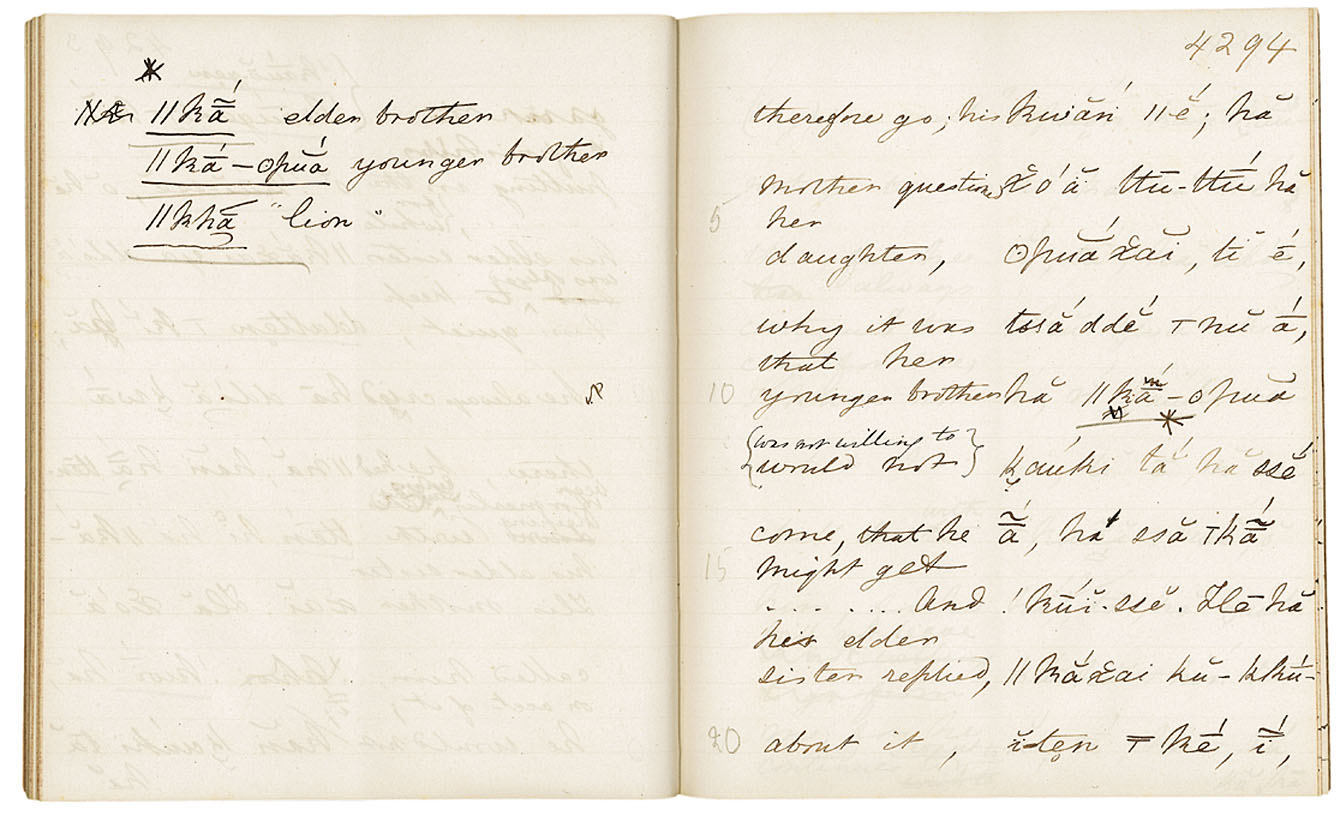 *
ǁkã́ elder brother
ǁká̄ – ʘpuá younger brother
ǁkhā "lion"
4294
therefore go; his kwărí ǁé; hă
mother questions χó̆ă ttŭ-ttū́ hă
5 her
daughter, ʘpuá̆χăi, tī é,
why it was tsá̆ ddĕ́ ͞ɪ nŭ ā́,
that her
10 younger brother hă ǁkā́ – ʘpuă
{was not willing to
would not} kaúki tá hă ssĕ́
come, that he ã́, hă ssă ͞ɪkã́
15 might get
. . . . . . . And !kúĭ-ssĕ. Hé hă
his elder
sister replied, ǁká̆χai kŭ-kkú-
20 about it, ĭten ͞ɪ ké, ī́,